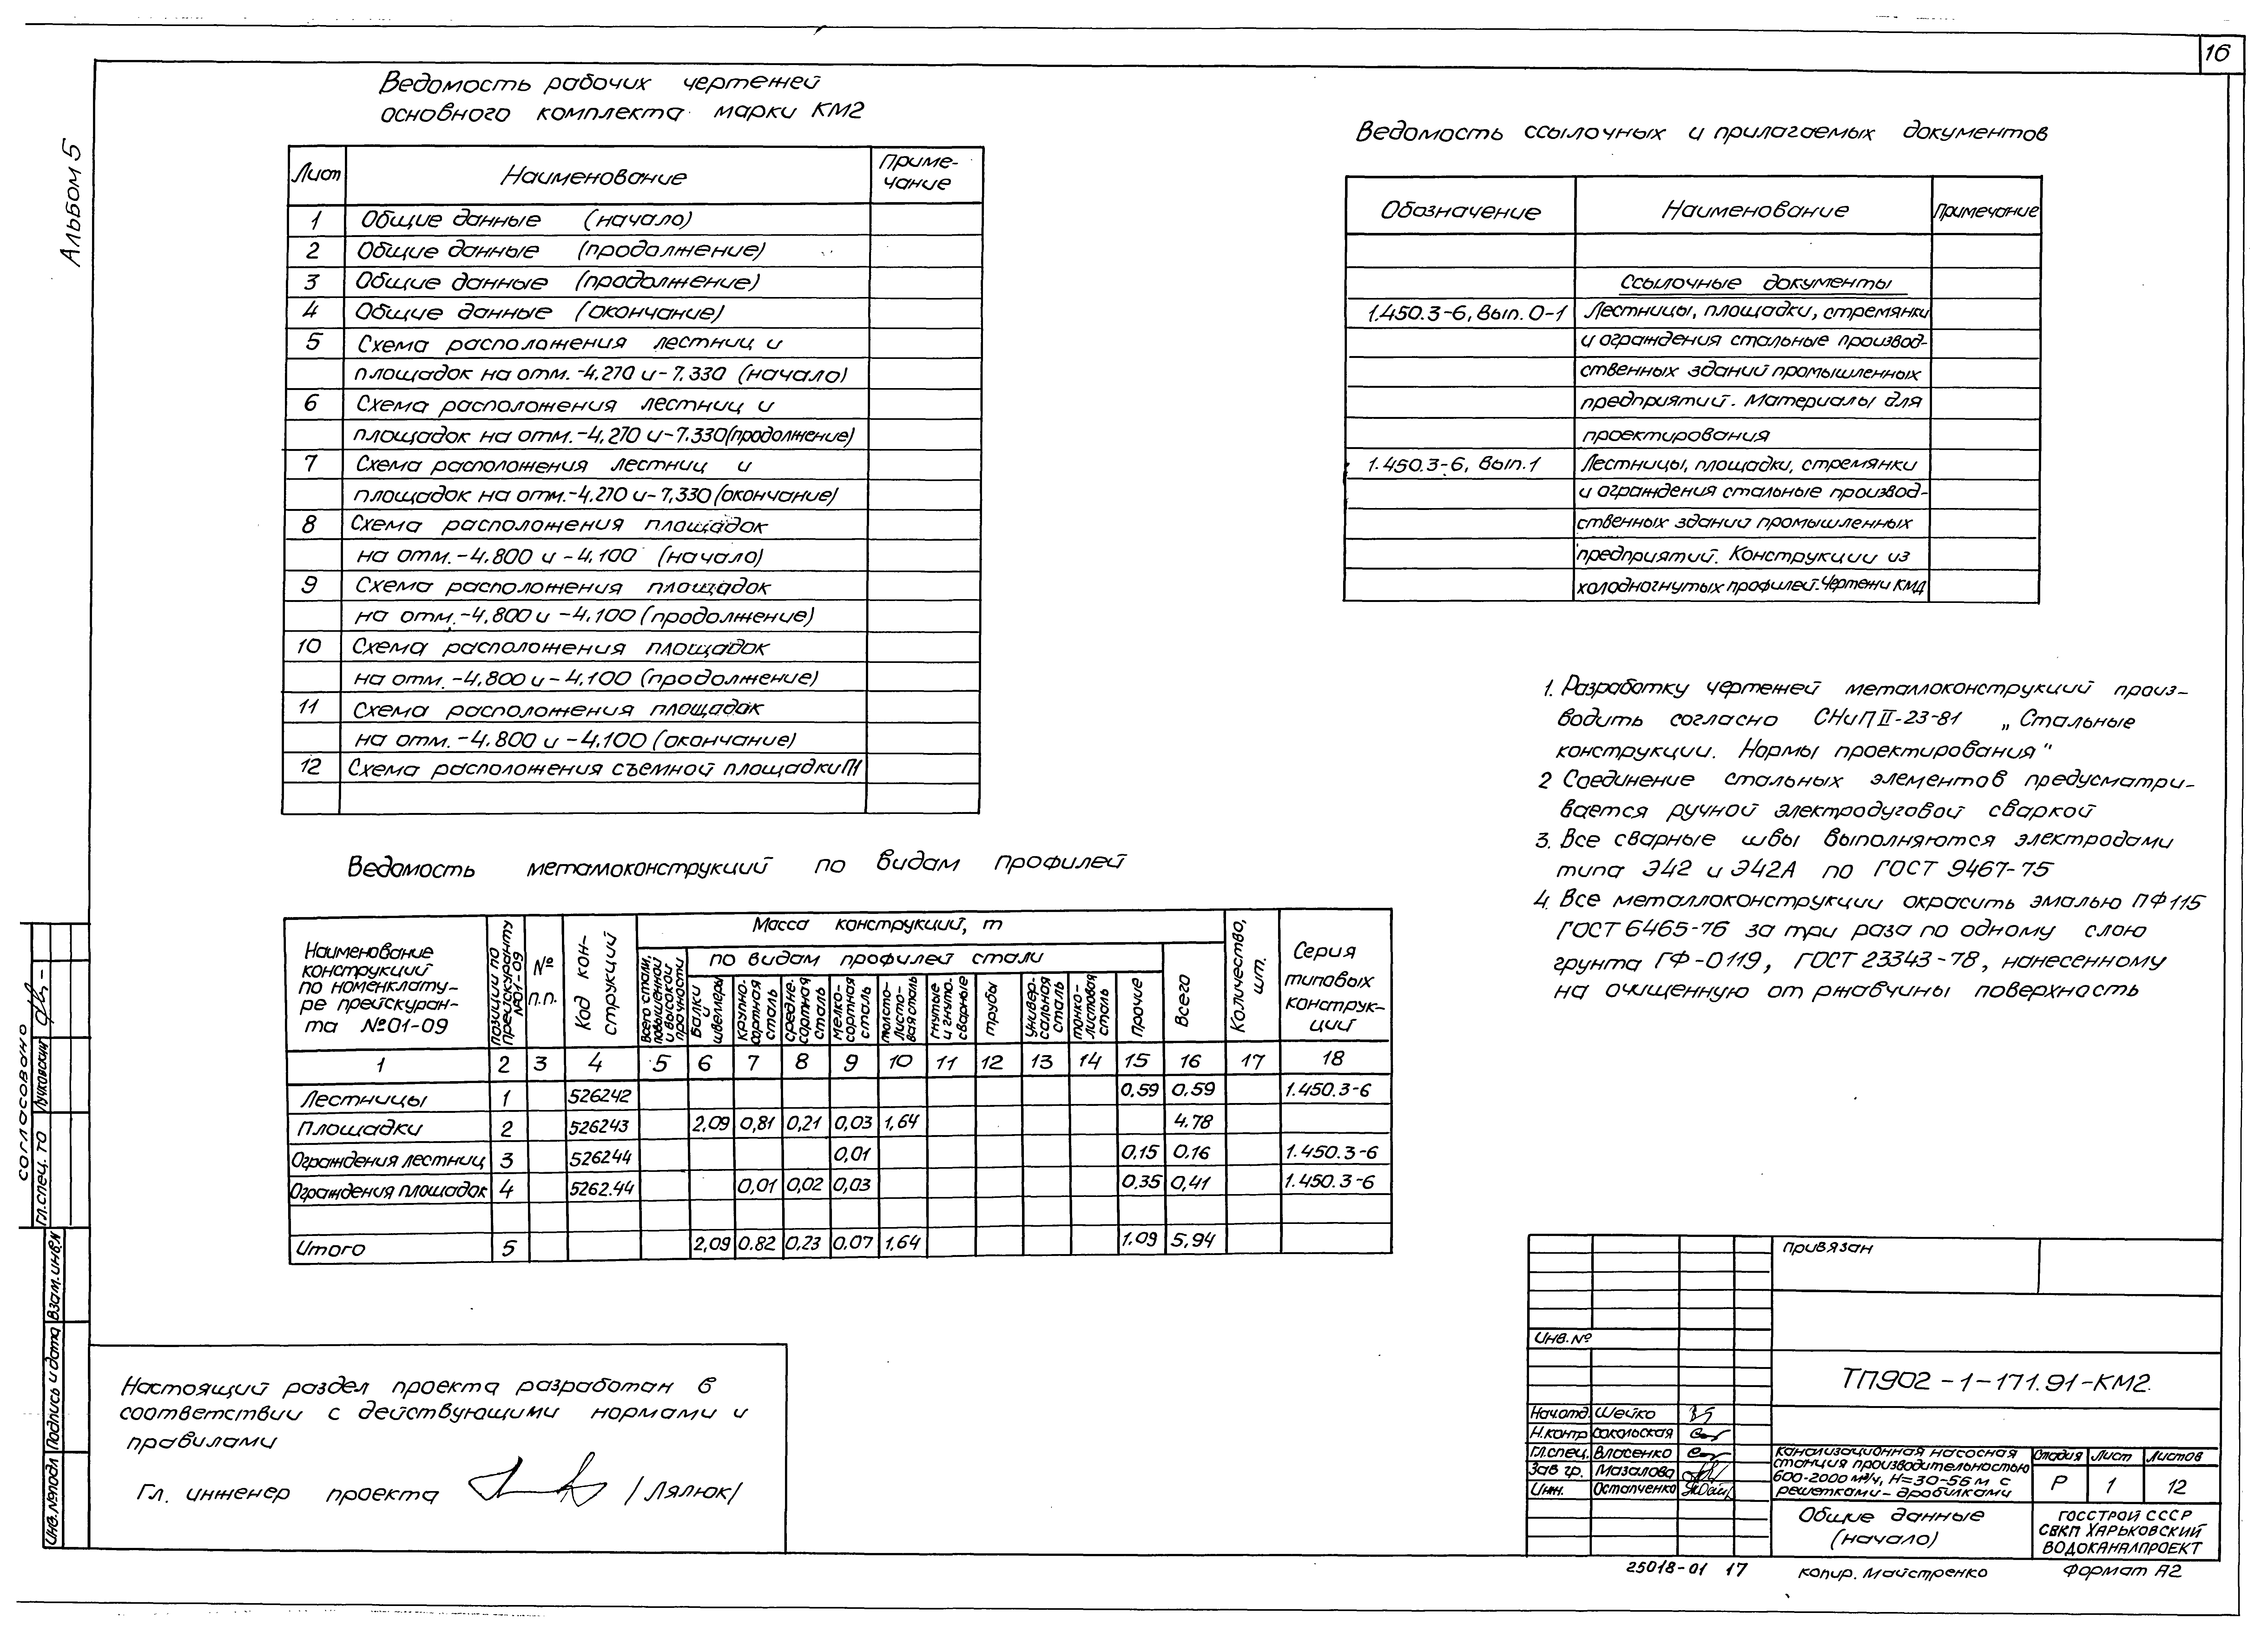 16
Альбом 5
Ведомость рабочих чертежей
основного комплекта марки КМ2
Лист Наименование Приме-
чание
1 Общие данные (начало)
2 Общие данные (продолжение)
3 Общие данные (продолжение)
4 Общие данные (окончание)
5 Схема расположения лестниц и
площадок на отм. -4,270 и -7,330 (начало)
6 Схема расположения лестниц и
площадок на отм. -4,270 и -7.330 (продолжение)
7 Схема расположения лестниц и
площадок на отм. -4,270 и -7,330 (окончание)
8 Схема расположения площадок
на отм. -4,800 и -4,100 (начало)
9 Схема расположения площадок
на отм. -4,800 и -4,100 (продолжение)
10 Схема расположения площадок
на отм. -4,800 и -4,100 (продолжение)
11 Схема расположения площадок
на отм. -4,800 и -4,100 (окончание)
12 Схема расположения съемной площадки П1
Ведомость ссылочных и прилагаемых документов
Обозначение Наименование Примечание
Ссылочные документы
1.450.3-6, Вып. 0-1 Лестницы, площадки, стремянки
и ограждения стальные производ-
ственных зданий промышленных
предприятий. Материалы для
проектирования
1.450.3-6, Вып. 1 Лестницы, площадки, стремянки
и ограждения стальные производ-
ственных зданий промышленных
предприятий. Конструкции из
холодногнутых профилей. Чертежи КМД
1. Разработку чертежей металлоконструкций произ-
водить согласно СНиП II-23-81 „Стальные
конструкции. Нормы проектирования"
2 Соединение стальных элементов предусматри-
вается ручной электродуговой сваркой
3. Все сварные швы выполняются электродами
типа Э42 и Э42А по ГОСТ 9467-75
4. Все металлоконструкции окрасить эмалью ПФ115
ГОСТ 6465-76 за три раза по одному слою
грунта ГФ-0119, ГОСТ 23343-78, нанесенному
на очищенную от ржавчины поверхность
Ведомость металоконструкций по видам профилей
Наименование
конструкций
по номенклату-
ре прейскуран-
та №01-09
позиции по
прейскуранту
№01-09
№
п.п.
Код кон-
струкций
Масса конструкций, т
Всего стали,
повышенной
и высокой
прочности
по видам профилей стали
Балки
и
швеллеры
крупно-
сортная
сталь
средне-
сортная
сталь
мелко-
сортная
сталь
толсто-
листо-
вая сталь
гнутые
и гнуто-
сварные
трубы
универ-
сальная
сталь
тонко-
листовая
сталь
прочие
Всего
Количество,
шт.
Серия
типовых
конструк-
ций
1 2 3 4 5 6 7 8 9 10 11 12 13 14 15 16 17 18
Лестницы 1 526242 0,59 0,59 1.450.3-6
Площадки 2 526243 2,09 0,81 0,21 0,03 1,64 4.78
Ограждения лестниц 3 526244 0,01 0.15 0.16 1.450.3-6
Ограждения площадок 4 5262.44 0,01 0,02 0,03 0,35 0,41 1.450.3-6
Итого 5 2,09 0.82 0,23 0.07 1,64 1.09 5,94
согласовано
Гл.спец. ТО Лучковский
Взам.инв.№
Подпись и дата
Инв.№подл
Настоящий раздел проекта разработан в
соответствии с действующими нормами и
правилами
Гл. инженер проекта /Лялюк/
Привязан
Инв.№
ТП902-1-171.91-КМ2.
Нач.отд. Шейко
Н.контр Сокольская
Гл.спец. Власенко
Зав гр. Мазалова
Инж. Остапченко
Канализационная насосная
станция производительностью
600-2000 м³/ч, Н=30-56 м с
решетками-дробилками
Стадия Лист Листов
Р 1 12
Общие данные
(начало)
ГОССТРОЙ СССР
СВКП ХАРЬКОВСКИЙ
ВОДОКАНАЛПРОЕКТ
25018-01 17
копир. Майстренко
Формат А2